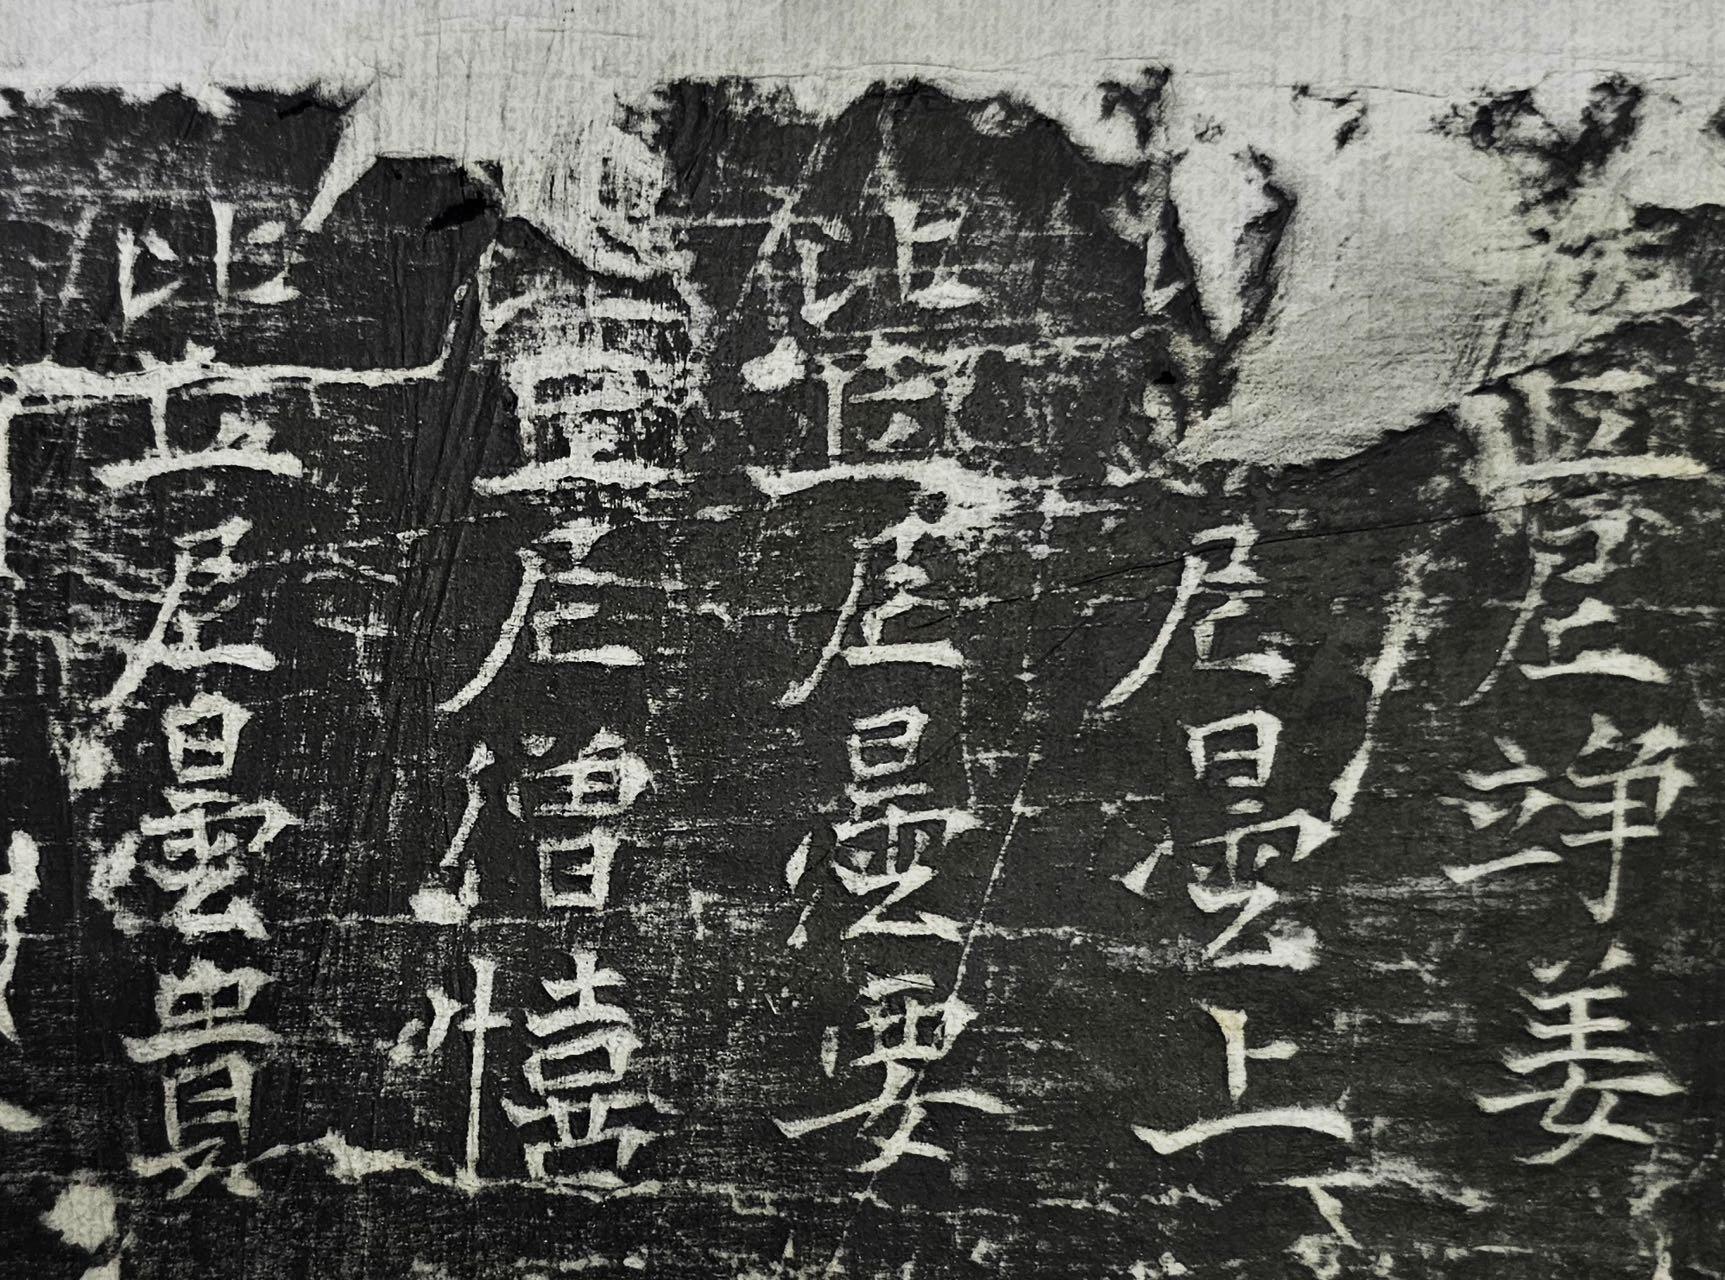 丘尼竫姜
尼曇上
比丘尼曇要
比丘尼僧憘
比丘尼曇貴